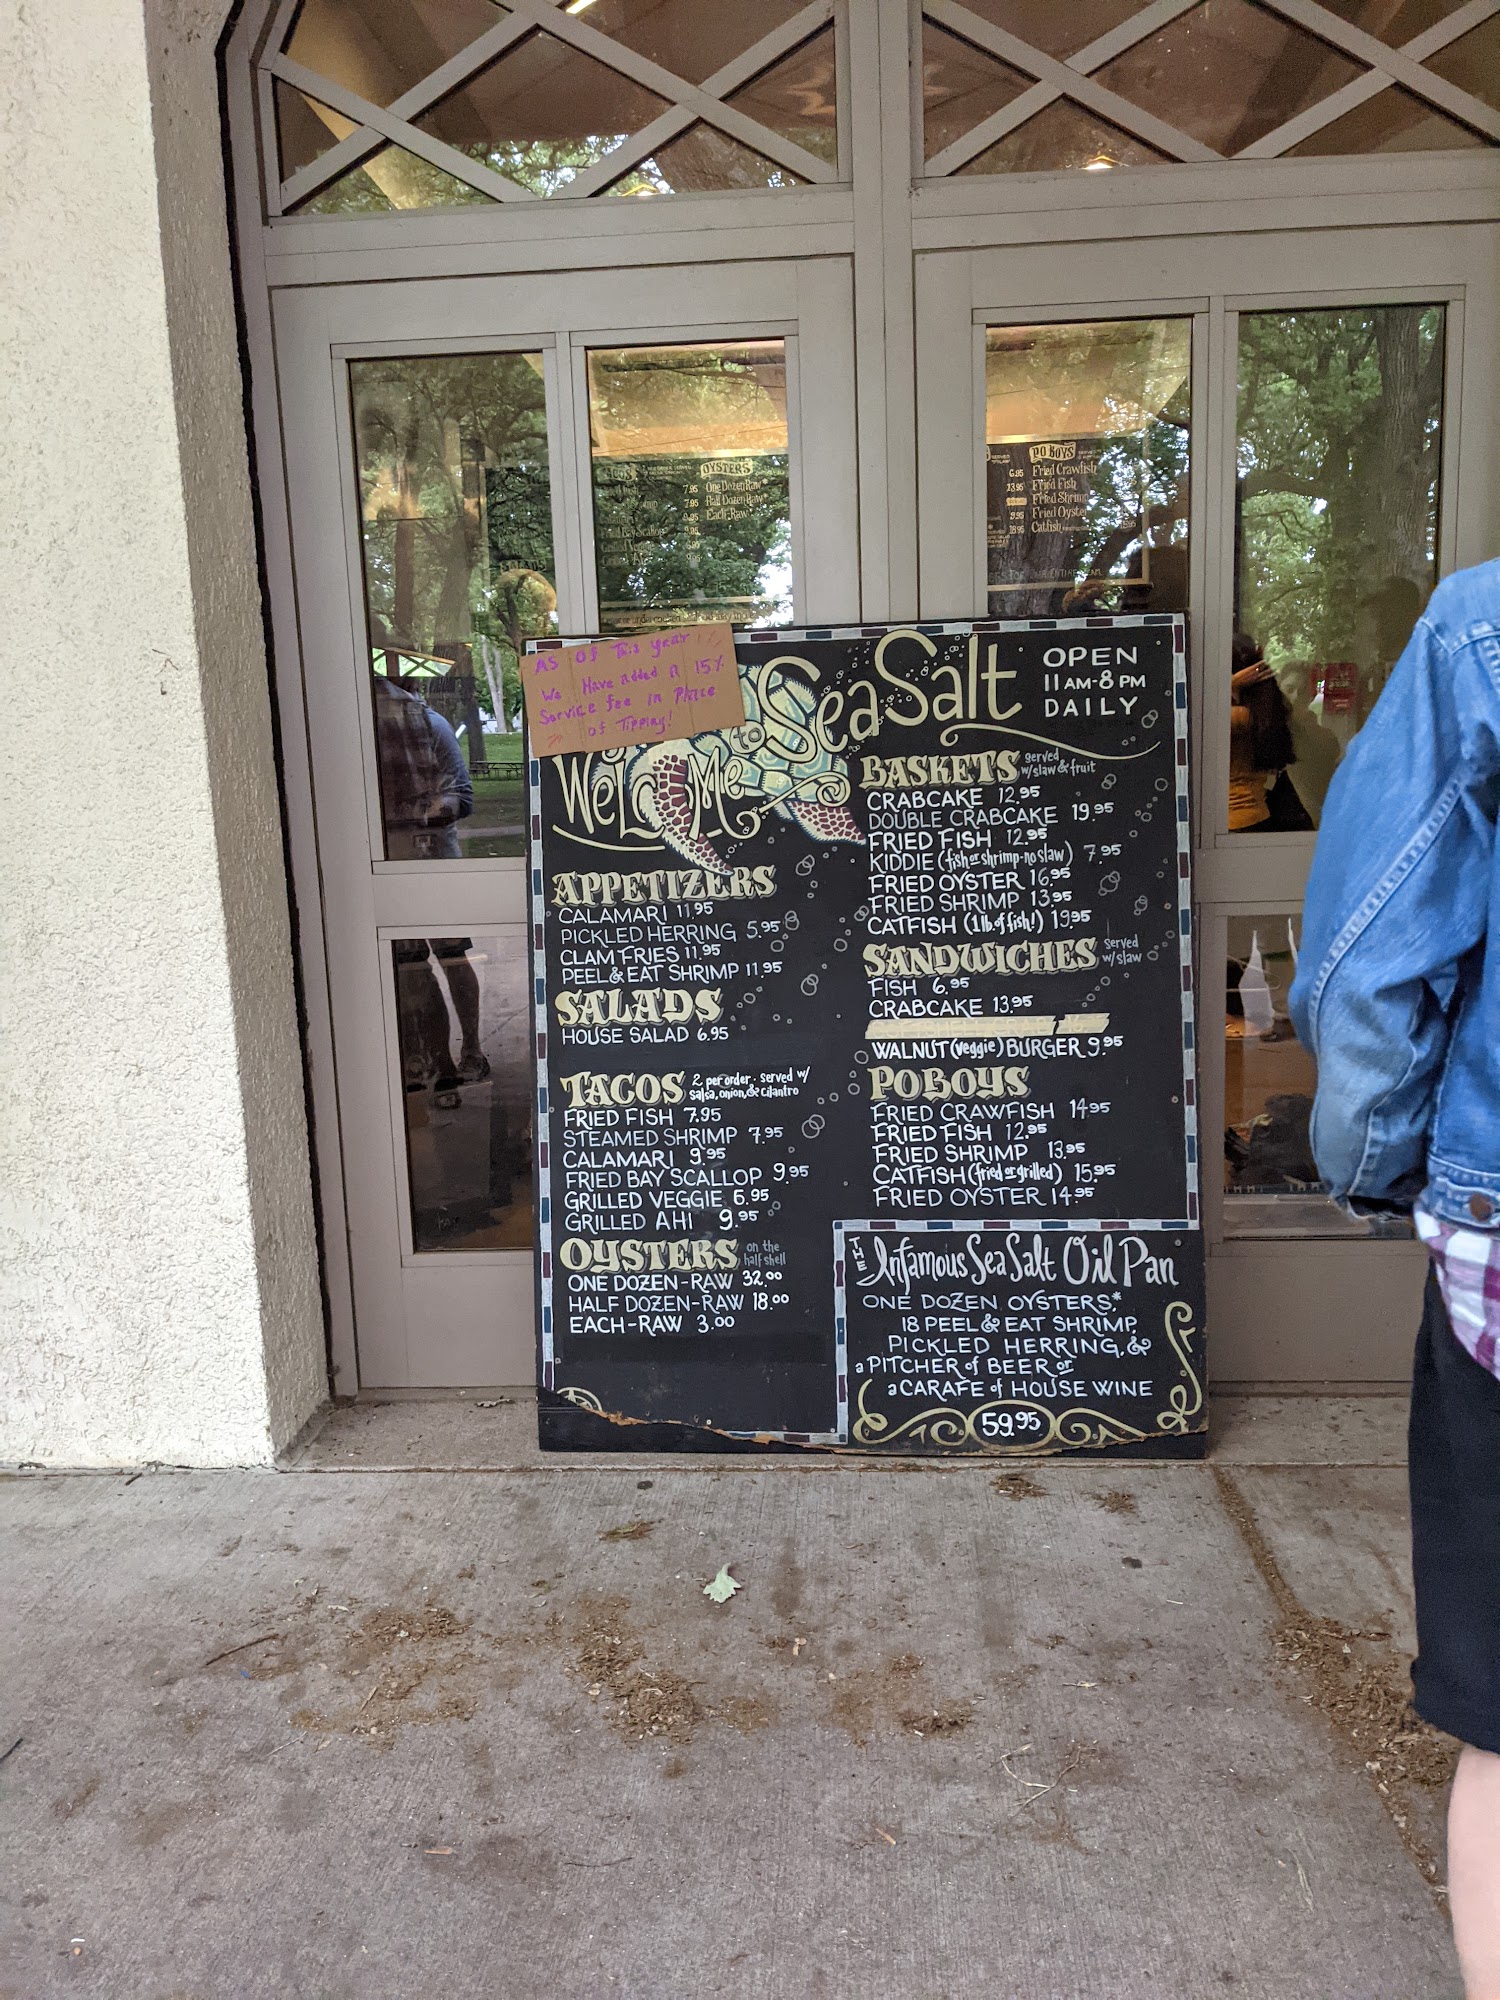 OYSTERS
7.95 One Dozen Raw*
7.95 Half Dozen Raw*
9.95 Each-Raw*
PO BOYS
6.95 Fried Crawfish
13.95 Fried Fish
Fried Shrimp
9.95 Fried Oyster
18.95 Catfish
As of This year
We Have added A 15%
Service fee in Place
of Tipping!
WELCOME to Sea Salt
OPEN
11 AM-8 PM
DAILY
APPETIZERS
CALAMARI 11.95
PICKLED HERRING 5.95
CLAM FRIES 11.95
PEEL & EAT SHRIMP 11.95
SALADS
HOUSE SALAD 6.95
TACOS 2 per order. served w/
salsa, onion, & cilantro
FRIED FISH 7.95
STEAMED SHRIMP 7.95
CALAMARI 9.95
FRIED BAY SCALLOP 9.95
GRILLED VEGGIE 6.95
GRILLED AHI 9.95
OYSTERS on the
half shell
ONE DOZEN-RAW 32.00
HALF DOZEN-RAW 18.00
EACH-RAW 3.00
BASKETS served
w/slaw & fruit
CRABCAKE 12.95
DOUBLE CRABCAKE 19.95
FRIED FISH 12.95
KIDDIE (fish or shrimp-no slaw) 7.95
FRIED OYSTER 16.95
FRIED SHRIMP 13.95
CATFISH (1 lb. of fish!) 19.95
SANDWICHES served
w/slaw
FISH 6.95
CRABCAKE 13.95
WALNUT (veggie) BURGER 9.95
PO BOYS
FRIED CRAWFISH 14.95
FRIED FISH 12.95
FRIED SHRIMP 13.95
CATFISH (fried or grilled) 15.95
FRIED OYSTER 14.95
THE Infamous Sea Salt Oil Pan
ONE DOZEN OYSTERS,*
18 PEEL & EAT SHRIMP,
PICKLED HERRING, &
a PITCHER of BEER or
a CARAFE of HOUSE WINE
59.95